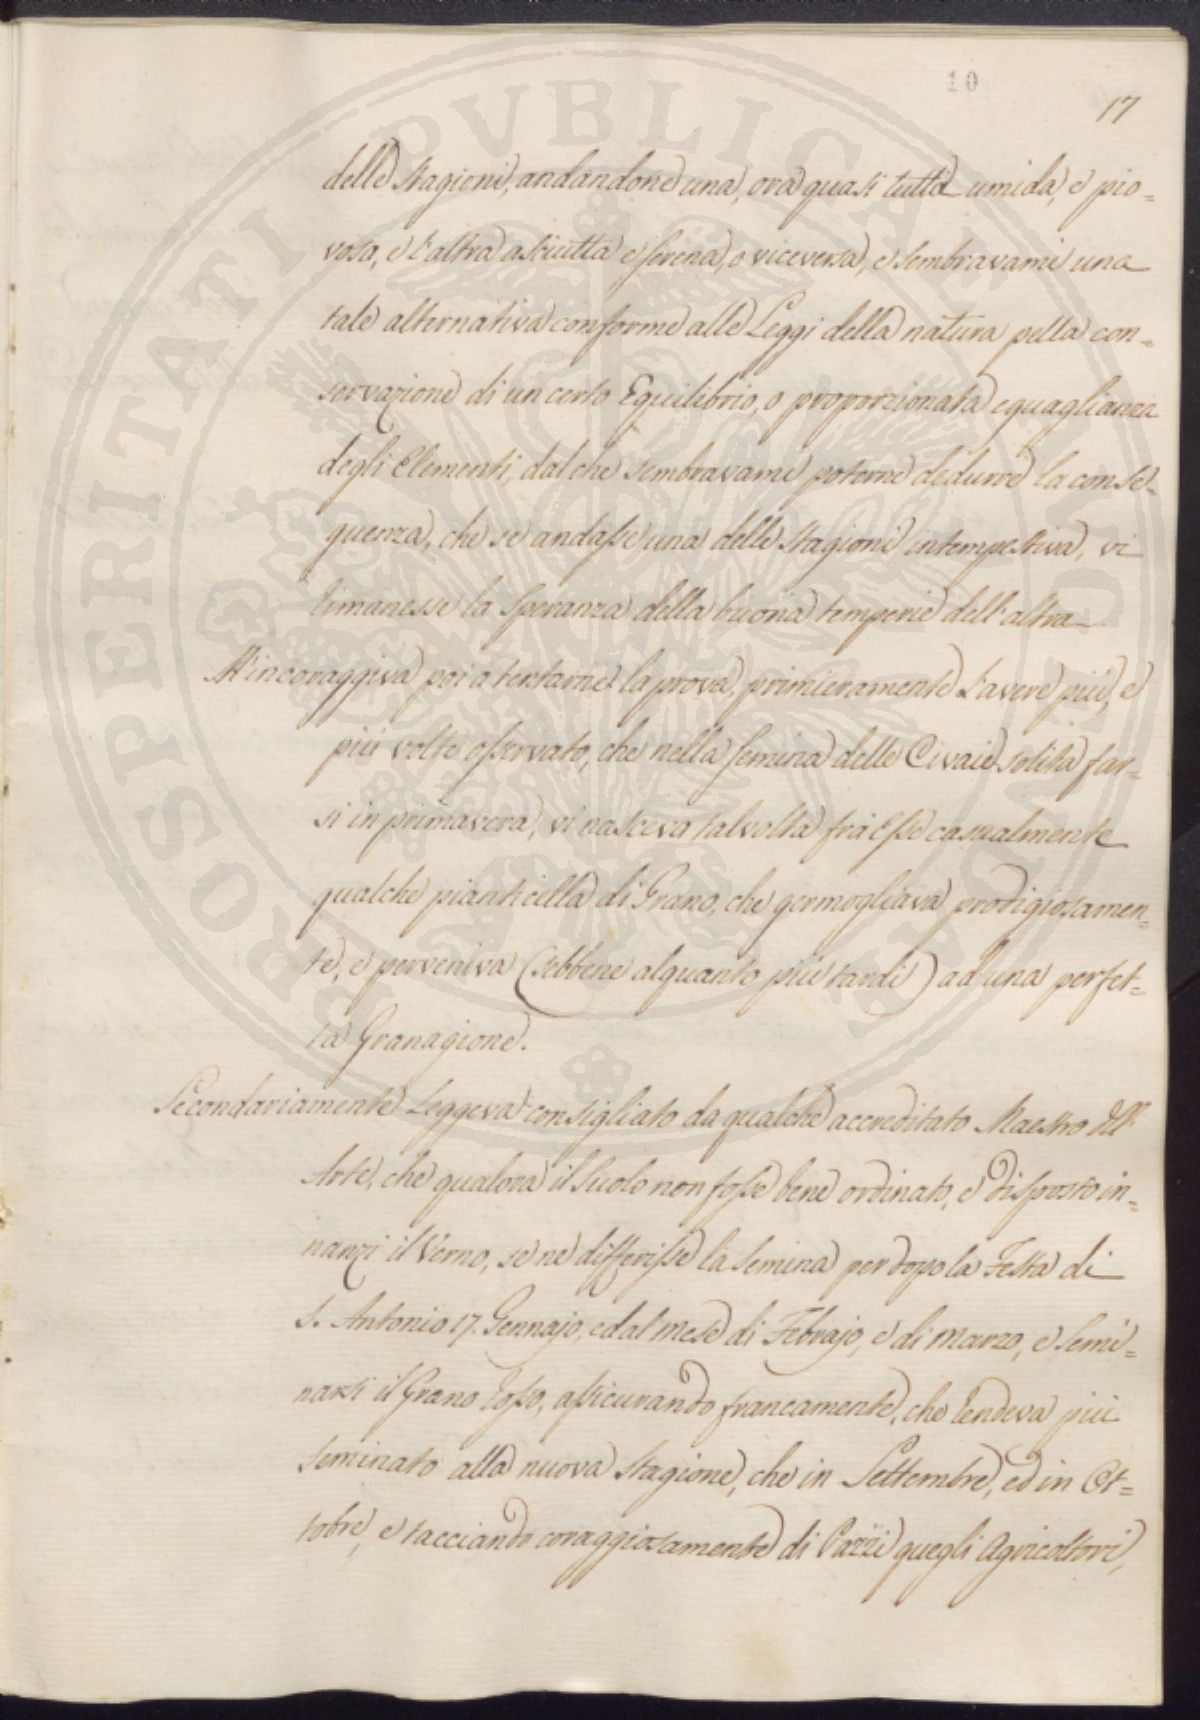 10
17
delle Stagioni, andandone una, ora quasi tutta umida, e pio=
vosa, e l'altra asciutta e serena, o viceversa, e sembravami una
tale alternativa conforme alle Leggi della natura pella con=
servazione di un certo Equilibrio, o proporzionata eguaglianza
degli Elementi, dal che sembravami poterne dedurre la conse=
guenza, che se andasse una delle Stagioni intempestiva, vi
rimanesse la Speranza della buona temperie dell'altra
M'incoraggiva poi a tentarne la prova, primieramente l'avere più, e
più volte osservato, che nella semina delle Civaie solita far=
si in primavera, vi nasceva talvolta frà Esse casualmente
qualche pianticella di Grano, che germogliava prodigiosamen=
te, e perveniva (sebbene alquanto più tardi) ad una perfet=
ta Granagione.
Secondariamente Leggeva consigliato da qualche accreditato Maestro dell'
Arte, che qualora il Suolo non fosse bene ordinato, e disposto in=
nanzi il Verno, se ne differisse la Semina per dopo la Festa di
S. Antonio 17. Gennajo, e dal mese di Febrajo, e di Marzo, e semi=
narsi il Grano Rosso, assicurando francamente, che rendeva più
seminato alla nuova Stagione, che in Settembre, ed in Ot=
tobre, e tacciando coraggiosamente di Pazzi quegli Agricoltori,
PROSPERITATI PVBLICAE AVGENDAE